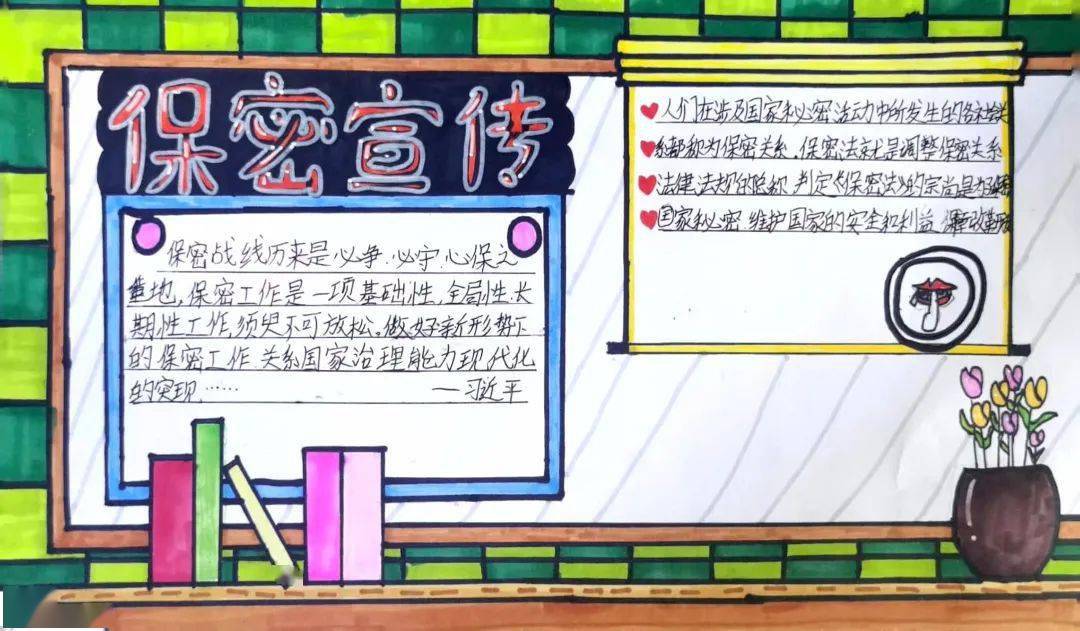 保密宣传
保密战线历来是必争、必守、必保之
地,保密工作是一项基础性、全局性、长
期性工作,须臾不可放松。做好新形势下
的保密工作、关系国家治理能力现代化
的实现……
—习近平
人们在涉及国家秘密活动中所发生的各社会关
系都称为保密关系,保密法就是调整保密关系
法律法规的总称,判定《保密法》的宗尚是为
国家秘密,维护国家的安全和利益,保改革开